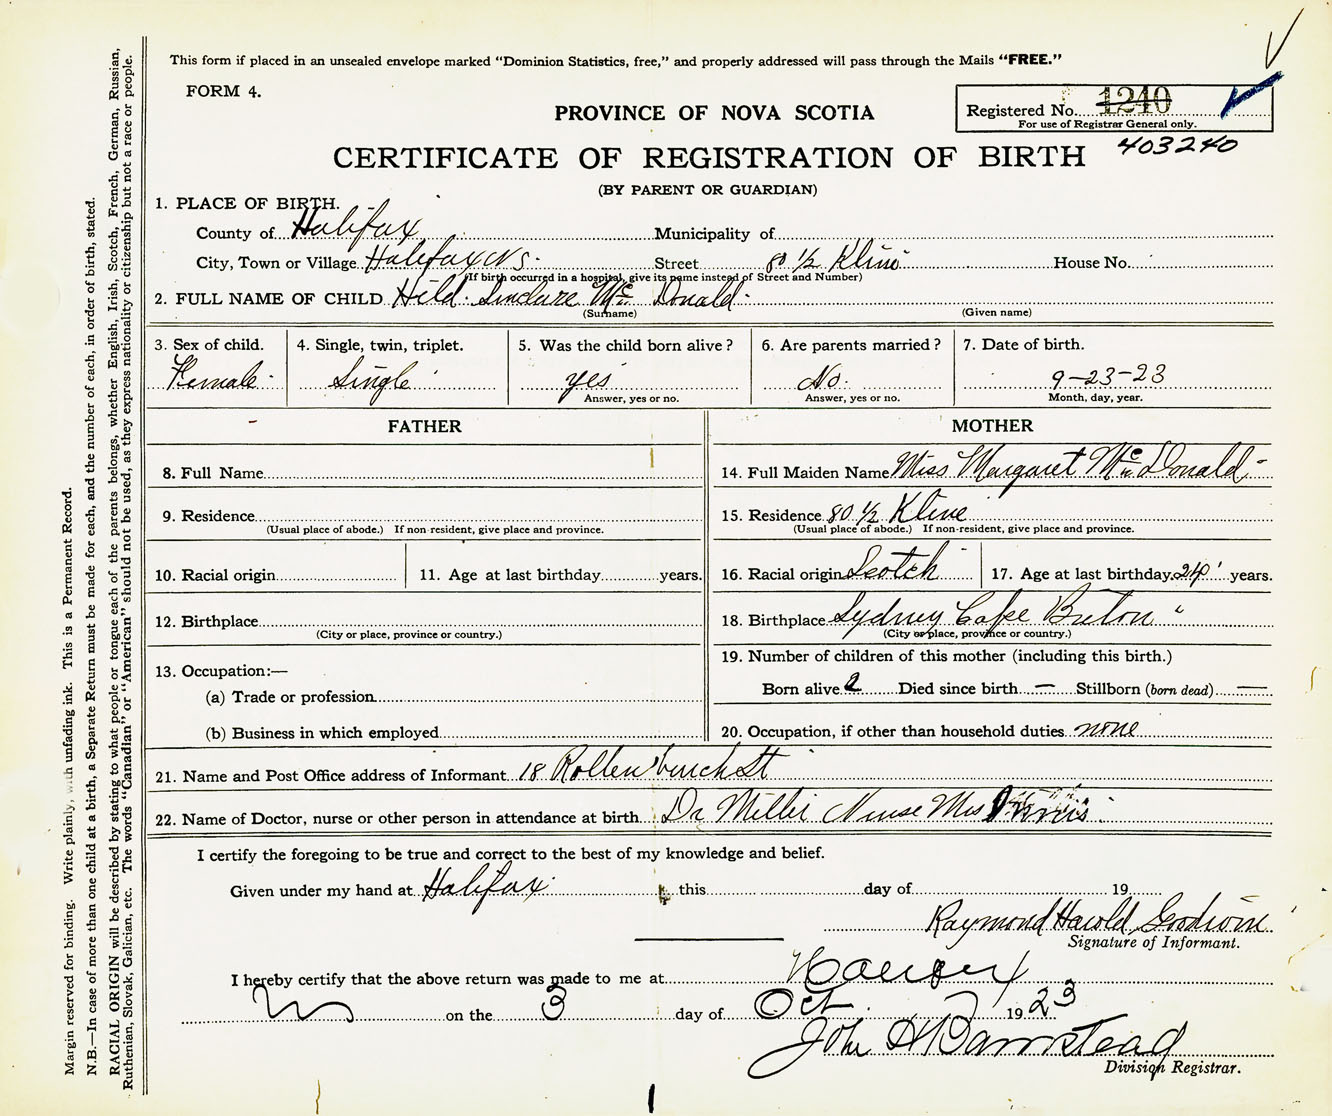 This form if placed in an unsealed envelope marked “Dominion Statistics, free,” and properly addressed will pass through the Mails “FREE.”
FORM 4.
Registered No. 1240
For use of Registrar General only.
403240
PROVINCE OF NOVA SCOTIA
CERTIFICATE OF REGISTRATION OF BIRTH
(BY PARENT OR GUARDIAN)
1. PLACE OF BIRTH.
County of Halifax Municipality of
City, Town or Village Halifax NS. Street 80 1/2 Kline House No.
(If birth occurred in a hospital, give its name instead of Street and Number)
2. FULL NAME OF CHILD Hild. Sinclare Mc Donald.
(Surname) (Given name)
3. Sex of child. 4. Single, twin, triplet. 5. Was the child born alive? 6. Are parents married? 7. Date of birth.
Female Single yes No. 9-23-23
Answer, yes or no. Answer, yes or no. Month, day, year.
FATHER
8. Full Name
9. Residence
(Usual place of abode.) If non-resident, give place and province.
10. Racial origin 11. Age at last birthday years.
12. Birthplace
(City or place, province or country.)
13. Occupation:—
(a) Trade or profession
(b) Business in which employed
MOTHER
14. Full Maiden Name Miss Margaret Mc Donald
15. Residence 80 1/2 Kline
(Usual place of abode.) If non-resident, give place and province.
16. Racial origin Scotch 17. Age at last birthday 24 years.
18. Birthplace Sydney Cape Breton
(City or place, province or country.)
19. Number of children of this mother (including this birth.)
Born alive 2 Died since birth — Stillborn (born dead) —
20. Occupation, if other than household duties none
21. Name and Post Office address of Informant 18 St
22. Name of Doctor, nurse or other person in attendance at birth Dr Miller Nurse Mrs
I certify the foregoing to be true and correct to the best of my knowledge and belief.
Given under my hand at Halifax this day of 19
Raymond Harold Goodwin
Signature of Informant.
I hereby certify that the above return was made to me at Halifax
on the 3 day of Oct 1923
John H Barnstead
Division Registrar.
Margin reserved for binding. Write plainly, with unfading ink. This is a Permanent Record.
N.B.—In case of more than one child at a birth, a Separate Return must be made for each, and the number of each, in order of birth, stated.
RACIAL ORIGIN will be described by stating to what people or tongue each of the parents belongs, whether English, Irish, Scotch, French, German, Russian,
Ruthenian, Slovak, Galician, etc. The words “Canadian” or “American” should not be used, as they express nationality or citizenship but not a race or people.